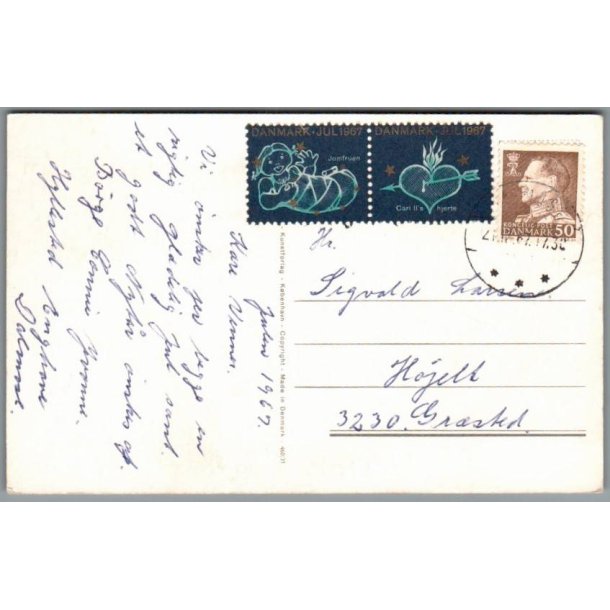 Julen 1967.
Kære Venner.
Vi ønsker jer begge en
rigtig glædelig Jul samt
et godt Nytår ønskes af
Børge Connie Yvonne.
DANMARK · JUL 1967
Jomfruen
DANMARK · JUL 1967
Carl II's hjerte
KONGELIG POST
DANMARK 50
Hr.
Sigvald Larsen
Højelt
3230. Græsted.
Kunstforlag - København - Copyright - Made in Denmark